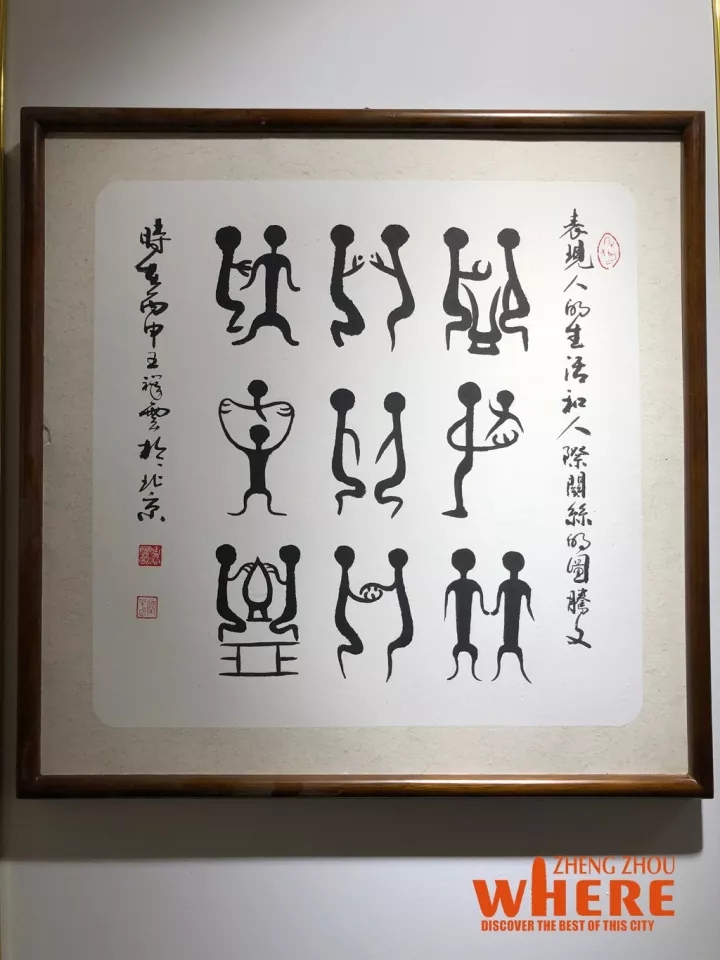 表現人的生活和人際關係的圖騰文
時在丙申王祥雲於北京
ZHENG ZHOU
WHERE
DISCOVER THE BEST OF THIS CITY